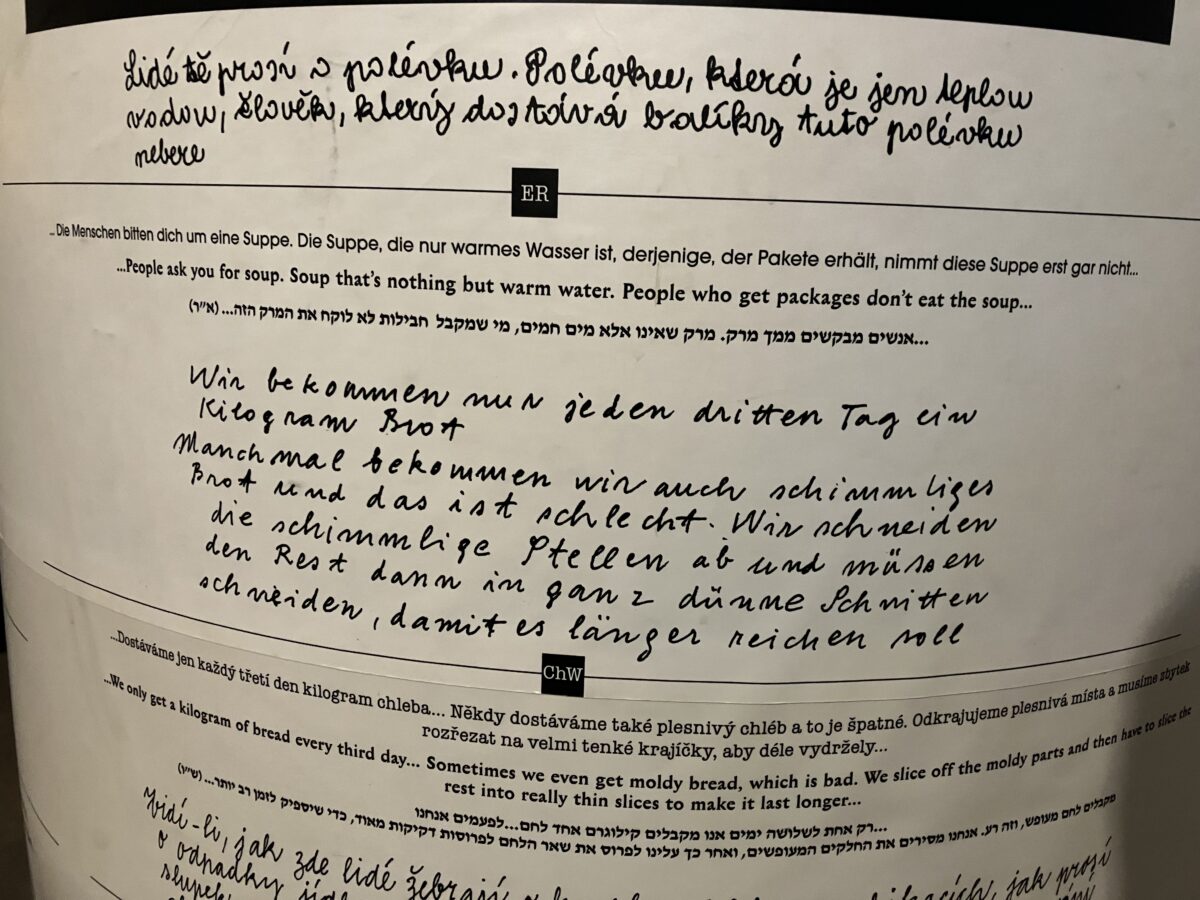 Lidé tě prosí o polévku. Polévku, která je jen teplou
vodou, člověk, který dostává balíky tuto polévku
nebere
ER
...Die Menschen bitten dich um eine Suppe. Die Suppe, die nur warmes Wasser ist, derjenige, der Pakete erhält, nimmt diese Suppe erst gar nicht...
...People ask you for soup. Soup that's nothing but warm water. People who get packages don't eat the soup...
...אנשים מבקשים ממך מרק. מרק שאינו אלא מים חמים, מי שמקבל חבילות לא לוקח את המרק הזה... (א״ר)
Wir bekommen nur jeden dritten Tag ein
Kilogram Brot
Manchmal bekommen wir auch schimmliges
Brot und das ist schlecht. Wir schneiden
die schimmlige Stellen ab und müssen
den Rest dann in ganz dünne Schnitten
schneiden, damit es länger reichen soll
ChW
...Dostáváme jen každý třetí den kilogram chleba... Někdy dostáváme také plesnivý chléb a to je špatné. Odkrajujeme plesnivá místa a musíme zbytek
rozřezat na velmi tenké krajíčky, aby déle vydržely...
...We only get a kilogram of bread every third day... Sometimes we even get moldy bread, which is bad. We slice off the moldy parts and then have to slice the
rest into really thin slices to make it last longer...
...רק אחת לשלושה ימים אנו מקבלים קילוגרם אחד לחם...לפעמים אנחנו
מקבלים לחם מעופש, וזה רע. אנחנו מסירים את החלקים המעופשים, ואחר כך עלינו לפרוס את שאר הלחם לפרוסות דקיקות מאוד, כדי שיספיק לזמן רב יותר... (ש״ץ)
Vidí-li, jak zde lidé žebrají jak prosí
o odpadky
slupek